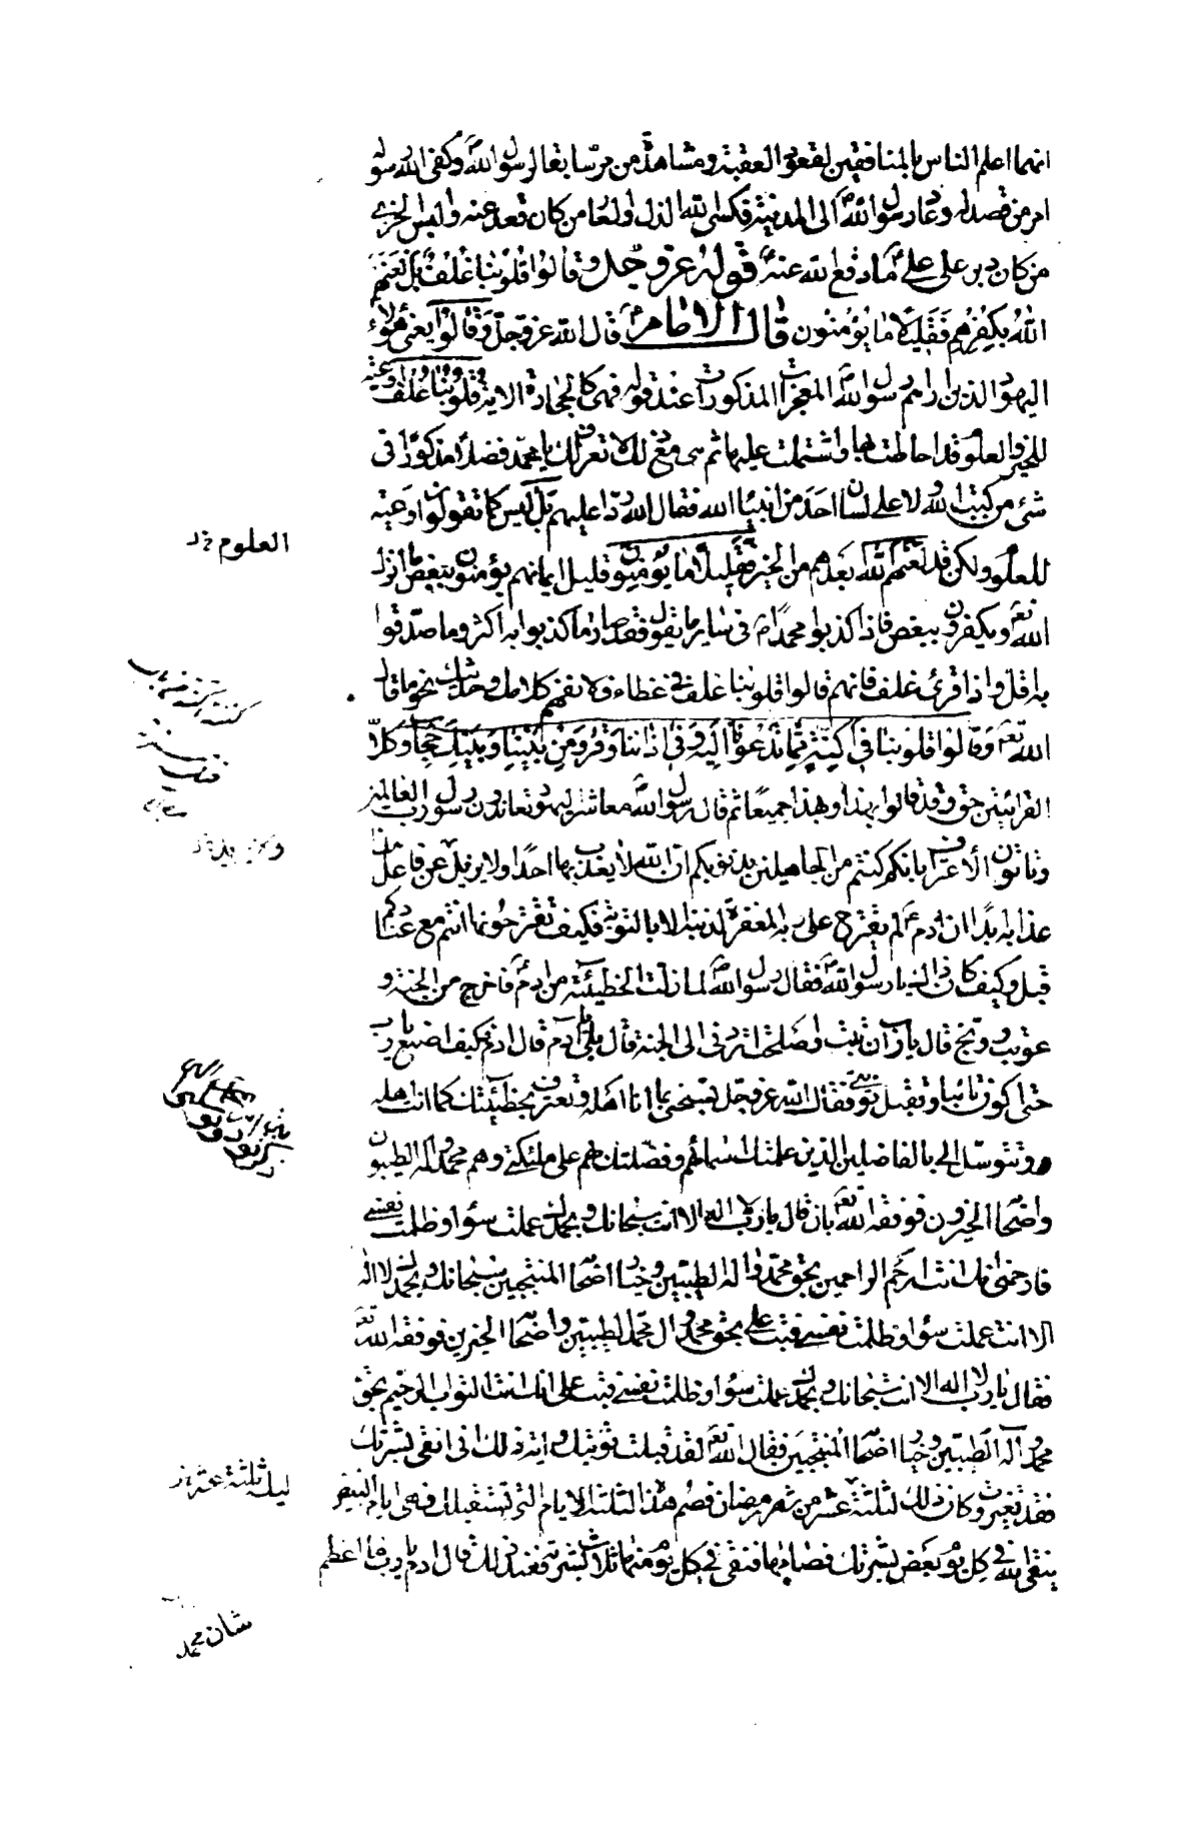 انهما اعلم الناس بالمنافقين لقعودهما في العقبة ومشاهدتهما من مر سابقا لرسول الله وكفى الله رسوله
امر من قصد له وعاد رسول الله الى المدينة فكسى الله الذل والعار من كان قعد عنه والبس الخزي
من كان دبر على علي ما دفع الله عنه قوله عز وجل وقالوا قلوبنا غلف بل لعنهم
الله بكفرهم فقليلا ما يؤمنون قال الامام قال الله عز وجل وقالوا يعنى هؤلاء
اليهود الذين اراهم رسول الله المعجزات المذكورات عند قوله فهى كالحجارة الاية قلوبنا غلف اوعية
للخير والعلوم قد احاطت بها واشتملت عليها ثم هى مع ذلك لا تعرف لك يا محمد فضلا مذكورا فى
شئ من كتب الله ولا على لسان احد من انبياء الله فقال الله ردا عليهم بل ليس كما تقولون اوعية
للعلوم ولكن قد لعنهم الله بعدهم من الخير فقليلا ما يؤمنون قليل ايمانهم يؤمنون ببعض ما انزل
الله تعالى ويكفرون ببعض فاذا كذبوا محمدا فى ساير ما يقول فقد صار ما كذبوا به اكثر وما صدقوا
به اقل واذا قرئ غلف فانهم قالوا قلوبنا غلف فى غطاء فلا نفهم كلامك وحديثك نحو ما قال
الله تعالى وقالوا قلوبنا فى اكنة مما تدعونا اليه وفى اذاننا وقر ومن بيننا وبينك حجاب وكلا
القرائتين حق وقد قالوا بهذا وهذا جميعا ثم قال رسول الله معاشر اليهود تعاندون رسول رب العالمين
وتابون الاعتراف بانكم كنتم من الجاهلين بذنوبكم ان الله لا يعذب بها احدا ولا يزيل عن فاعل هذا
عذابه ابدا ان ادم لم يقترح على ربه المغفرة لذنبه الا بالتوبة فكيف تقترحونها انتم مع عنادكم
قيل وكيف كان ذاك يا رسول الله فقال رسول الله لما زلت الخطيئة من ادم فاخرج من الجنة و
عوتب ووبخ قال يا رب ان تبت واصلحت اتردنى الى الجنة قال بلى يا ادم قال ادم فكيف اصنع يا رب
حتى اكون تائبا وتقبل توبتى فقال الله عز وجل تسبحنى بما انا اهله وتعترف بخطيئتك كما انت اهله
وتتوسل الى بالفاضلين الذين علمتك اسمائهم وفضلتك بهم على ملئكتى وهم محمد واله الطيبون
واصحابه الخيرون فوفقه الله تعالى بان قال يا رب لا اله الا انت سبحانك وبحمدك عملت سوءا وظلمت نفسى
فارحمنى انك انت ارحم الراحمين بحق محمد واله الطيبين وخيار اصحابه المنتجبين سبحانك وبحمدك لا اله
الا انت عملت سوءا وظلمت نفسى فتب على بحق محمد وال محمد الطيبين واصحابه الخيرين فوفقه الله تعالى
فقال يا رب لا اله الا انت سبحانك وبحمدك عملت سوءا وظلمت نفسى فتب على انك انت التواب الرحيم بحق
محمد واله الطيبين وخيار اصحابه المنتجبين فقال الله تعالى لقد قبلت توبتك واية ذلك انى انقى بشرتك
فقد تغيرت وكان ذلك لثلثة عشر من شهر رمضان فصم هذه الثلثة الايام التى تستقبلك فهى ايام البيض
ينقى الله فى كل يوم بعض بشرتك فصامها فنقى فى كل يوم منها ثلاث بشرته فعند ذلك قال ادم يا رب ما اعظم
شان محمد
العلوم